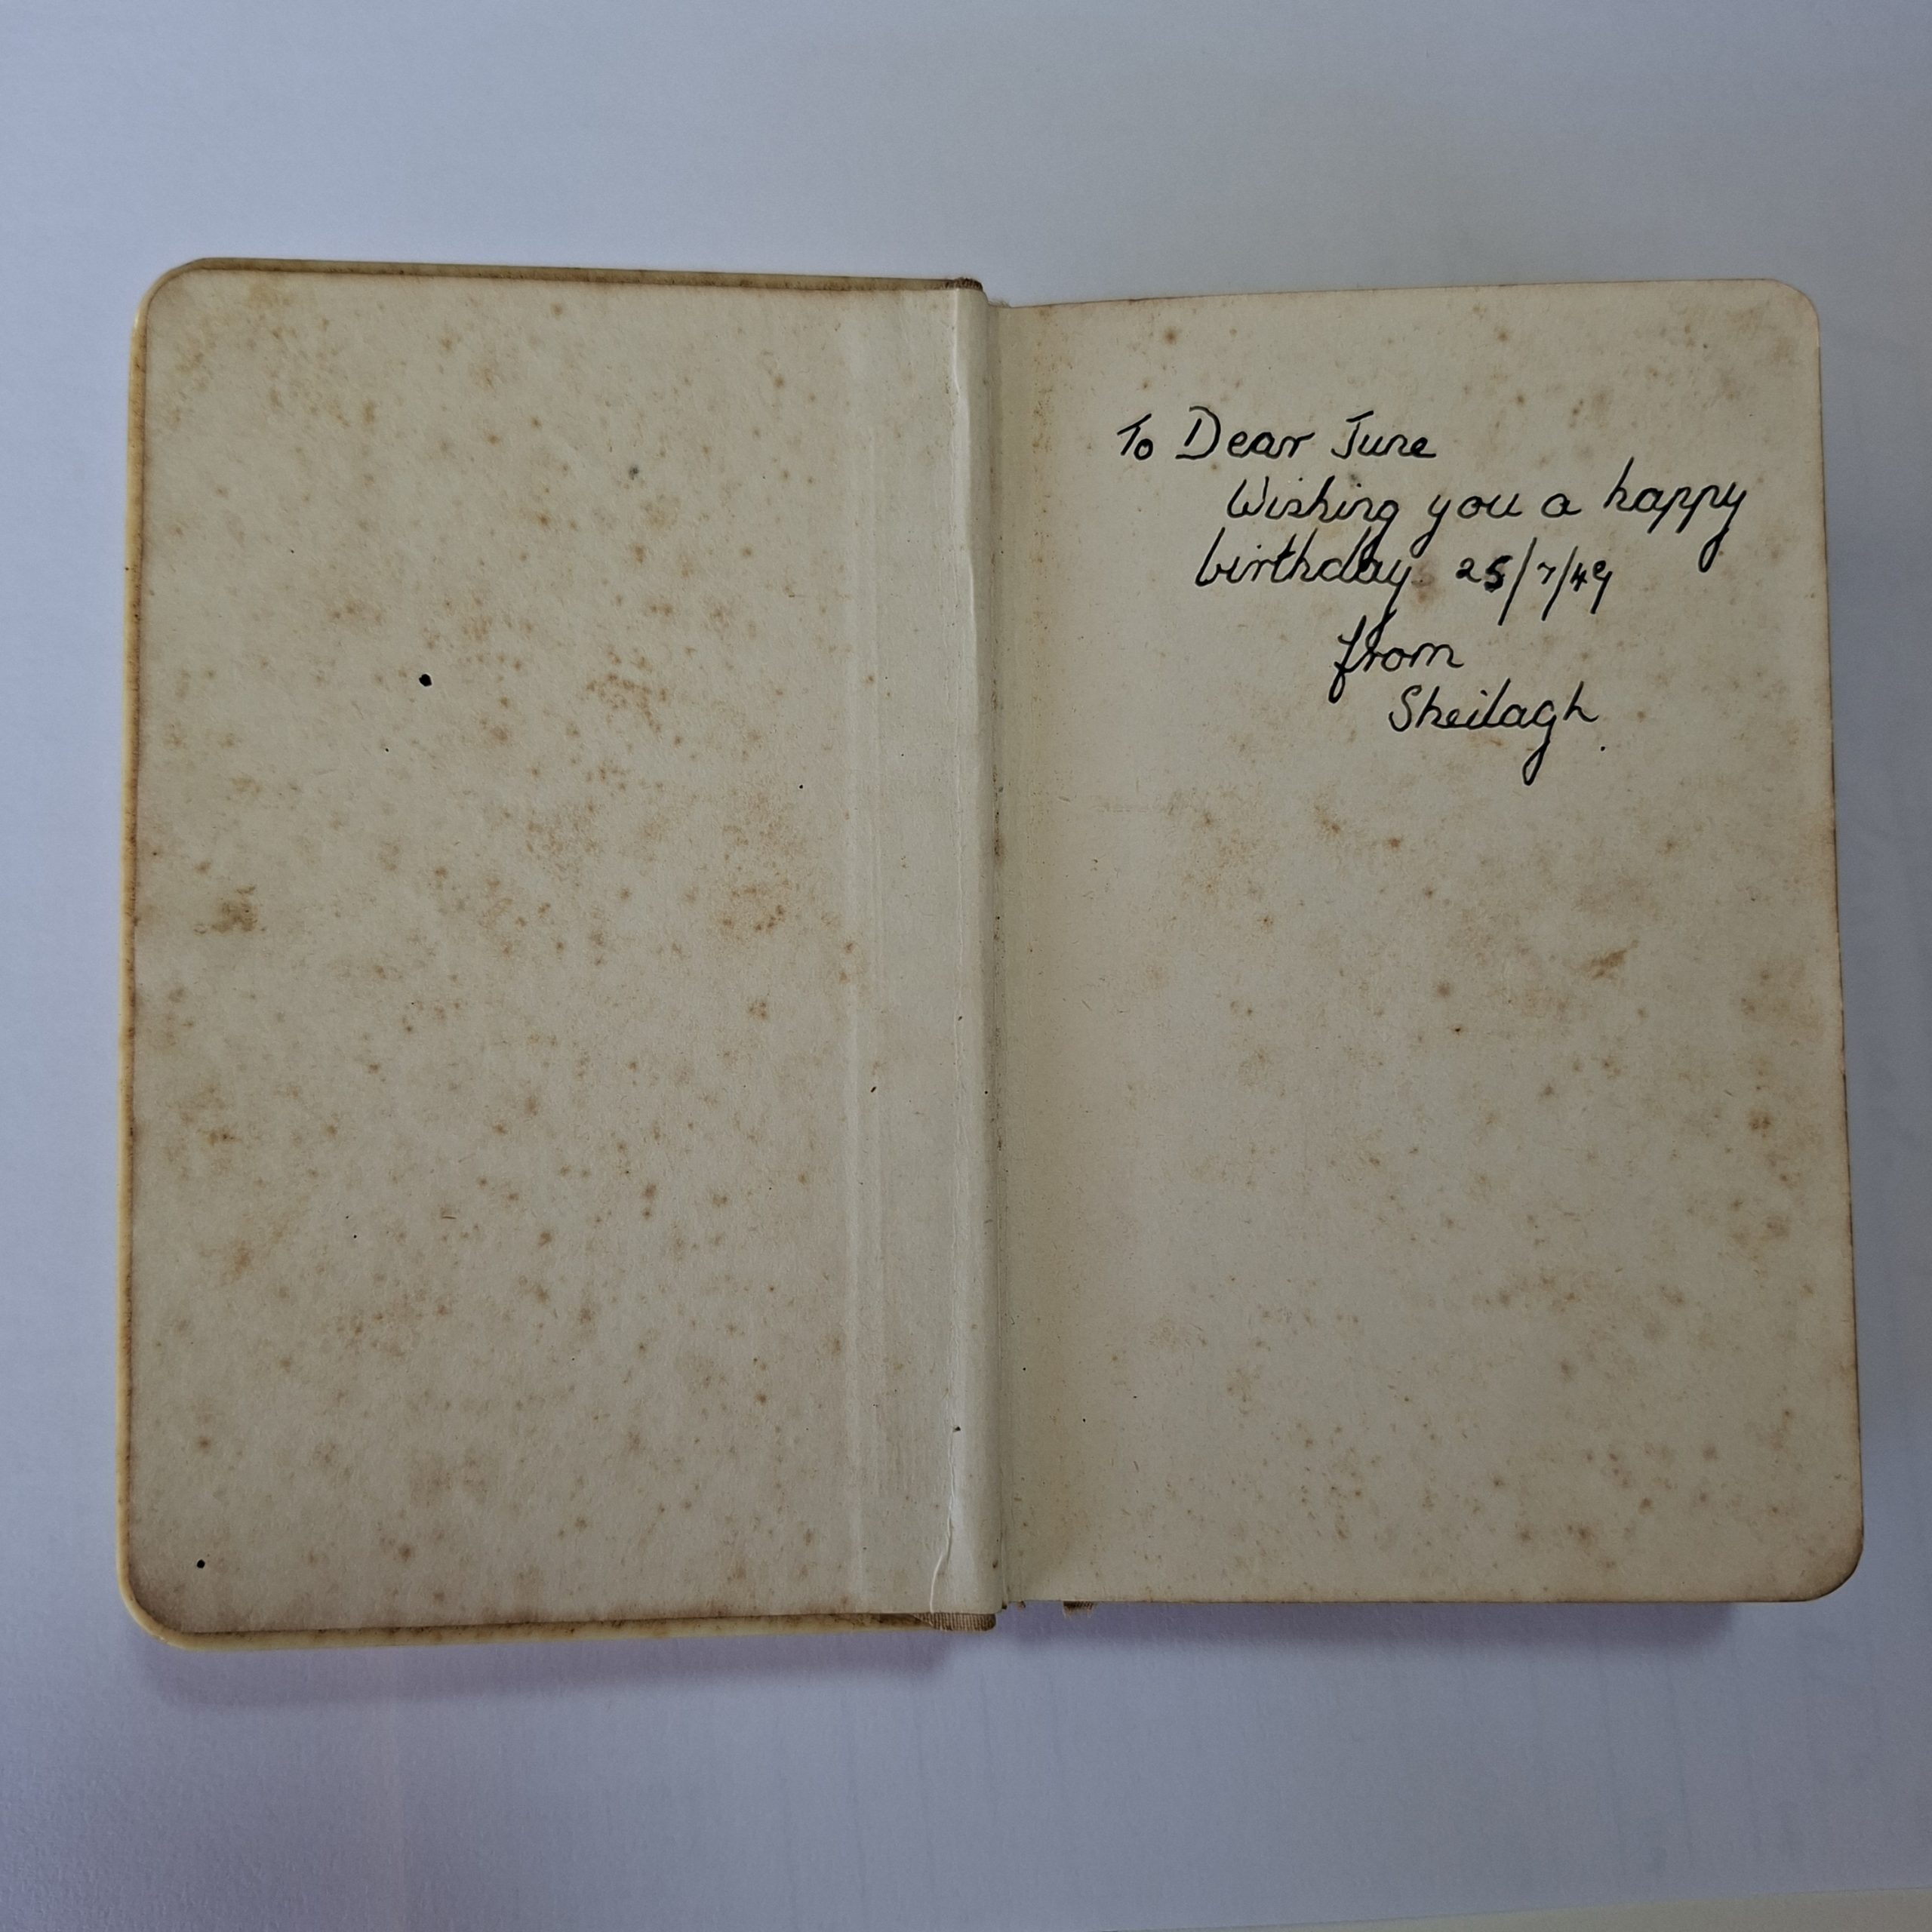 To Dear June
Wishing you a happy
birthday 25/7/49
from
Sheilagh.